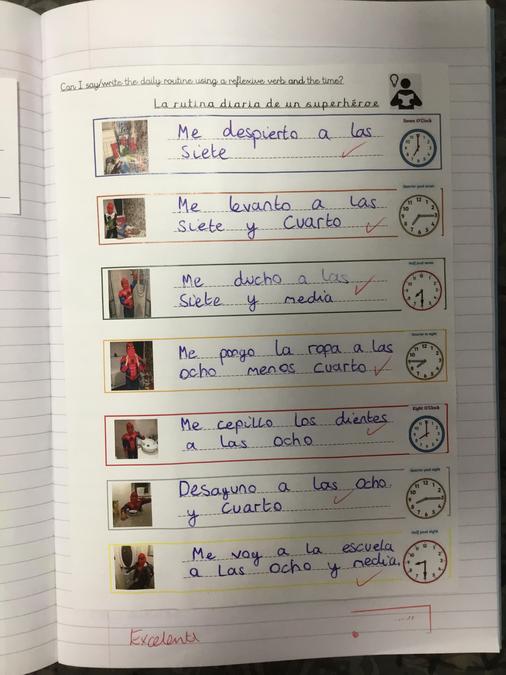 Can I say/write the daily routine using a reflexive verb and the time?
La rutina diaria de un superhéroe
Seven O'Clock
Me despierto a las
siete
Quarter past seven
Me levanto a las
siete y cuarto
Half past seven
Me ducho a las
siete y media
Quarter to eight
Me pongo la ropa a las
ocho menos cuarto
Eight O'Clock
Me cepillo los dientes
a las ocho
Quarter past eight
Desayuno a las ocho.
y cuarto
Half past eight
Me voy a la escuela
a las ocho y media.
Excelente